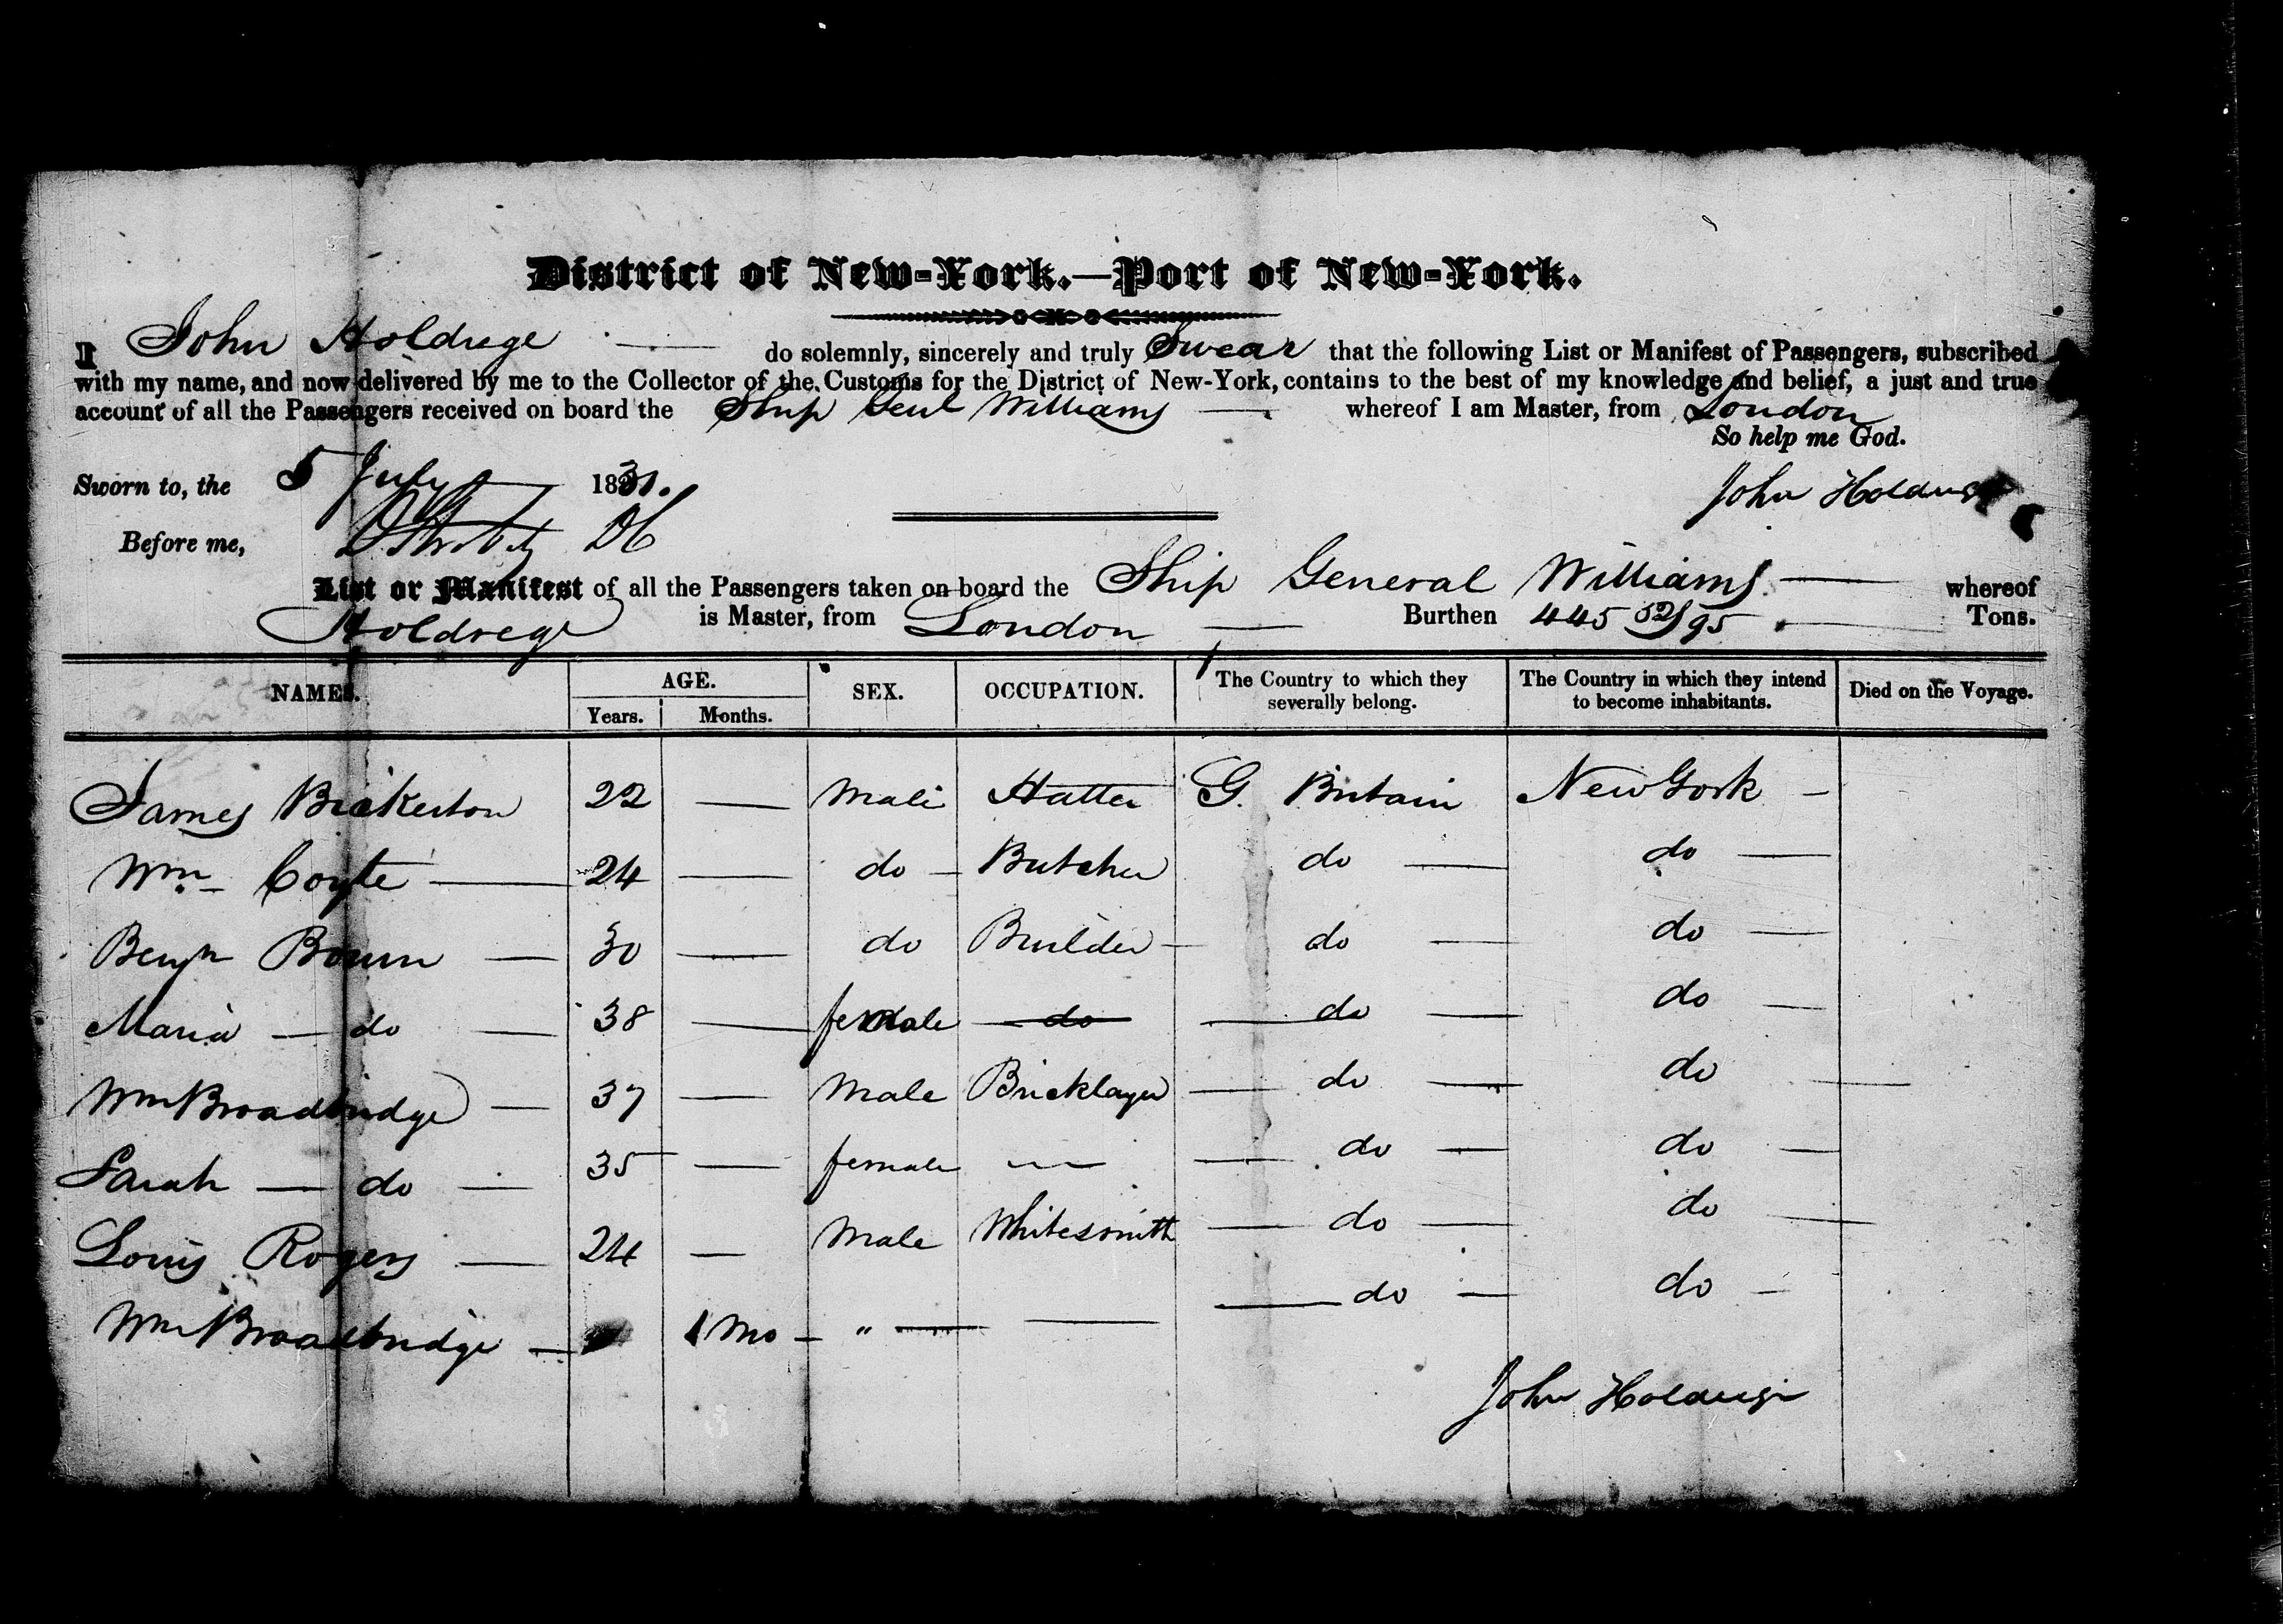 District of New-York.—Port of New-York.
I John Holdrege do solemnly, sincerely and truly Swear that the following List or Manifest of Passengers, subscribed
with my name, and now delivered by me to the Collector of the Customs for the District of New-York, contains to the best of my knowledge and belief, a just and true
account of all the Passengers received on board the Ship Genl Williams — whereof I am Master, from London
So help me God.
Sworn to, the 5 July 1831. John Holdrege
Before me, DC
List or Manifest of all the Passengers taken on board the Ship General Williams — whereof
Holdrege is Master, from London — Burthen 445 52/95 Tons.
NAMES. AGE. SEX. OCCUPATION. The Country to which they severally belong. The Country in which they intend to become inhabitants. Died on the Voyage.
Years. Months.
James Bickerton 22 — Male Hatter G. Britain New York —
Wm Coyte — 24 — do — Butcher do — do —
Benjn Bown — 30 — do Builder — do — do —
Maria — do — 38 — female — do — do — do —
Wm Broadbridge — 37 — Male Bricklayer — do — do —
Sarah — do — 35 — female — — do — do —
Louis Rogers — 24 — Male Whitesmith — do — do —
Wm Broadbridge — 1 Mo — " — — — do — do —
John Holdrege